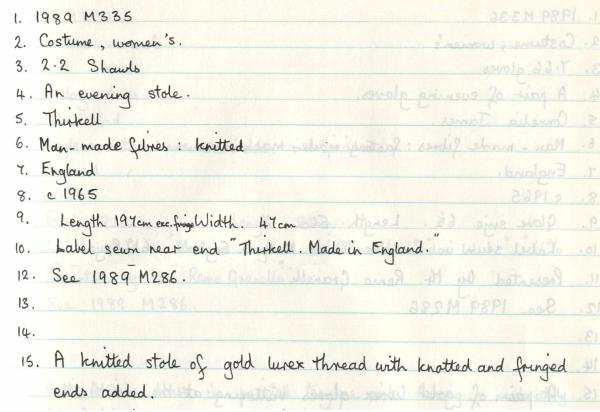 1. 1989 M335
2. Costume, women's.
3. 2.2 Shawls
4. An evening stole.
5. Thirkell
6. Man-made fibres: knitted
7. England
8. c 1965
9. Length 197cm exc. fringe Width. 47cm
10. Label sewn near end "Thirkell. Made in England."
12. See 1989 M286.
13.
14.
15. A knitted stole of gold lurex thread with knotted and fringed
ends added.